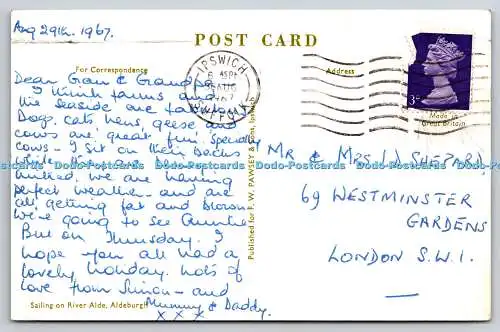 Aug 29th. 1967.
POST CARD
For Correspondence
Address
IPSWICH
SUFFOLK
3D
Made in
Great Britain
Dear Gran & Grandpa
I think farms and
the seaside are fab.
Dogs, cats, hens, geese and
cows are great fun, specially
cows - I sit on their backs
while
milked. We are having
perfect weather - and are
all getting fat and brown
We're going to see Auntie
But on Thursday. I
hope you all had a
lovely holiday. Lots of
love from Simon - and
Mummy & Daddy.
x x x
Published for F. W. PAWSEY & Sons, Ipswich
MR & MRS. W. SHEPARD,
69 WESTMINSTER
GARDENS
LONDON S.W.1.
Sailing on River Alde, Aldeburgh
Dodo-Postcards Dodo-Postcards Dodo-Postcards Dodo-Postcards Dodo-Postcards